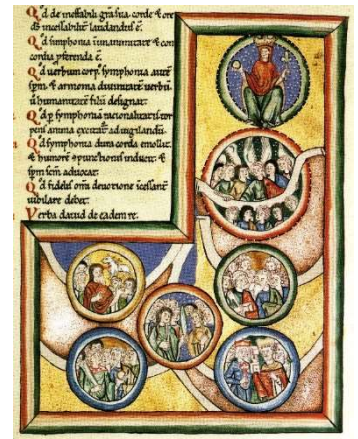 Qd de ineffabili gra sua corde & ore
ds incessabilit laudandus e.
Qd symphonia unanimitate & con
cordia pferenda e.
Qd uerbum corp symphonia aute
spm. & armonia diuinitate uerbu
u humanitate filii designat.
Qd p symphonia rationalitatis tor
pens anima excitat ad uigilandu.
Qd symphonia dura corda emollit.
& humore punctionis inducit. &
spm scm aduocat.
Qd fidelis omi deuotione icessant
iubilare debet.
Verba dauid de eadem re.